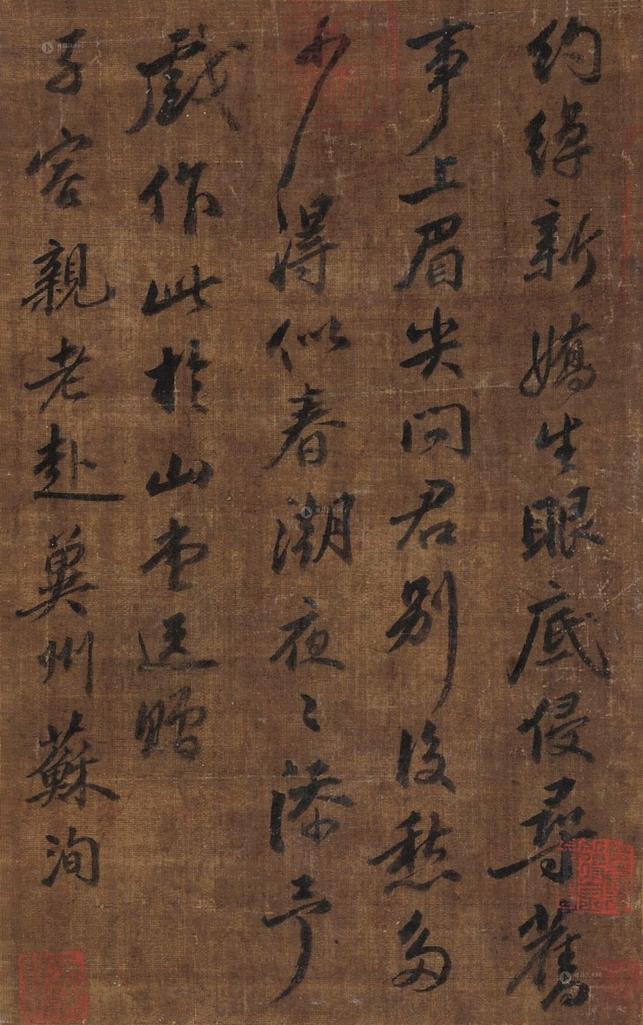 约綽新嬌生眼底侵尋舊
事上眉尖問君别後愁多
少得似春潮夜〻添予
戲作此於山堂送贈
子容親老赴冀州蘇洵